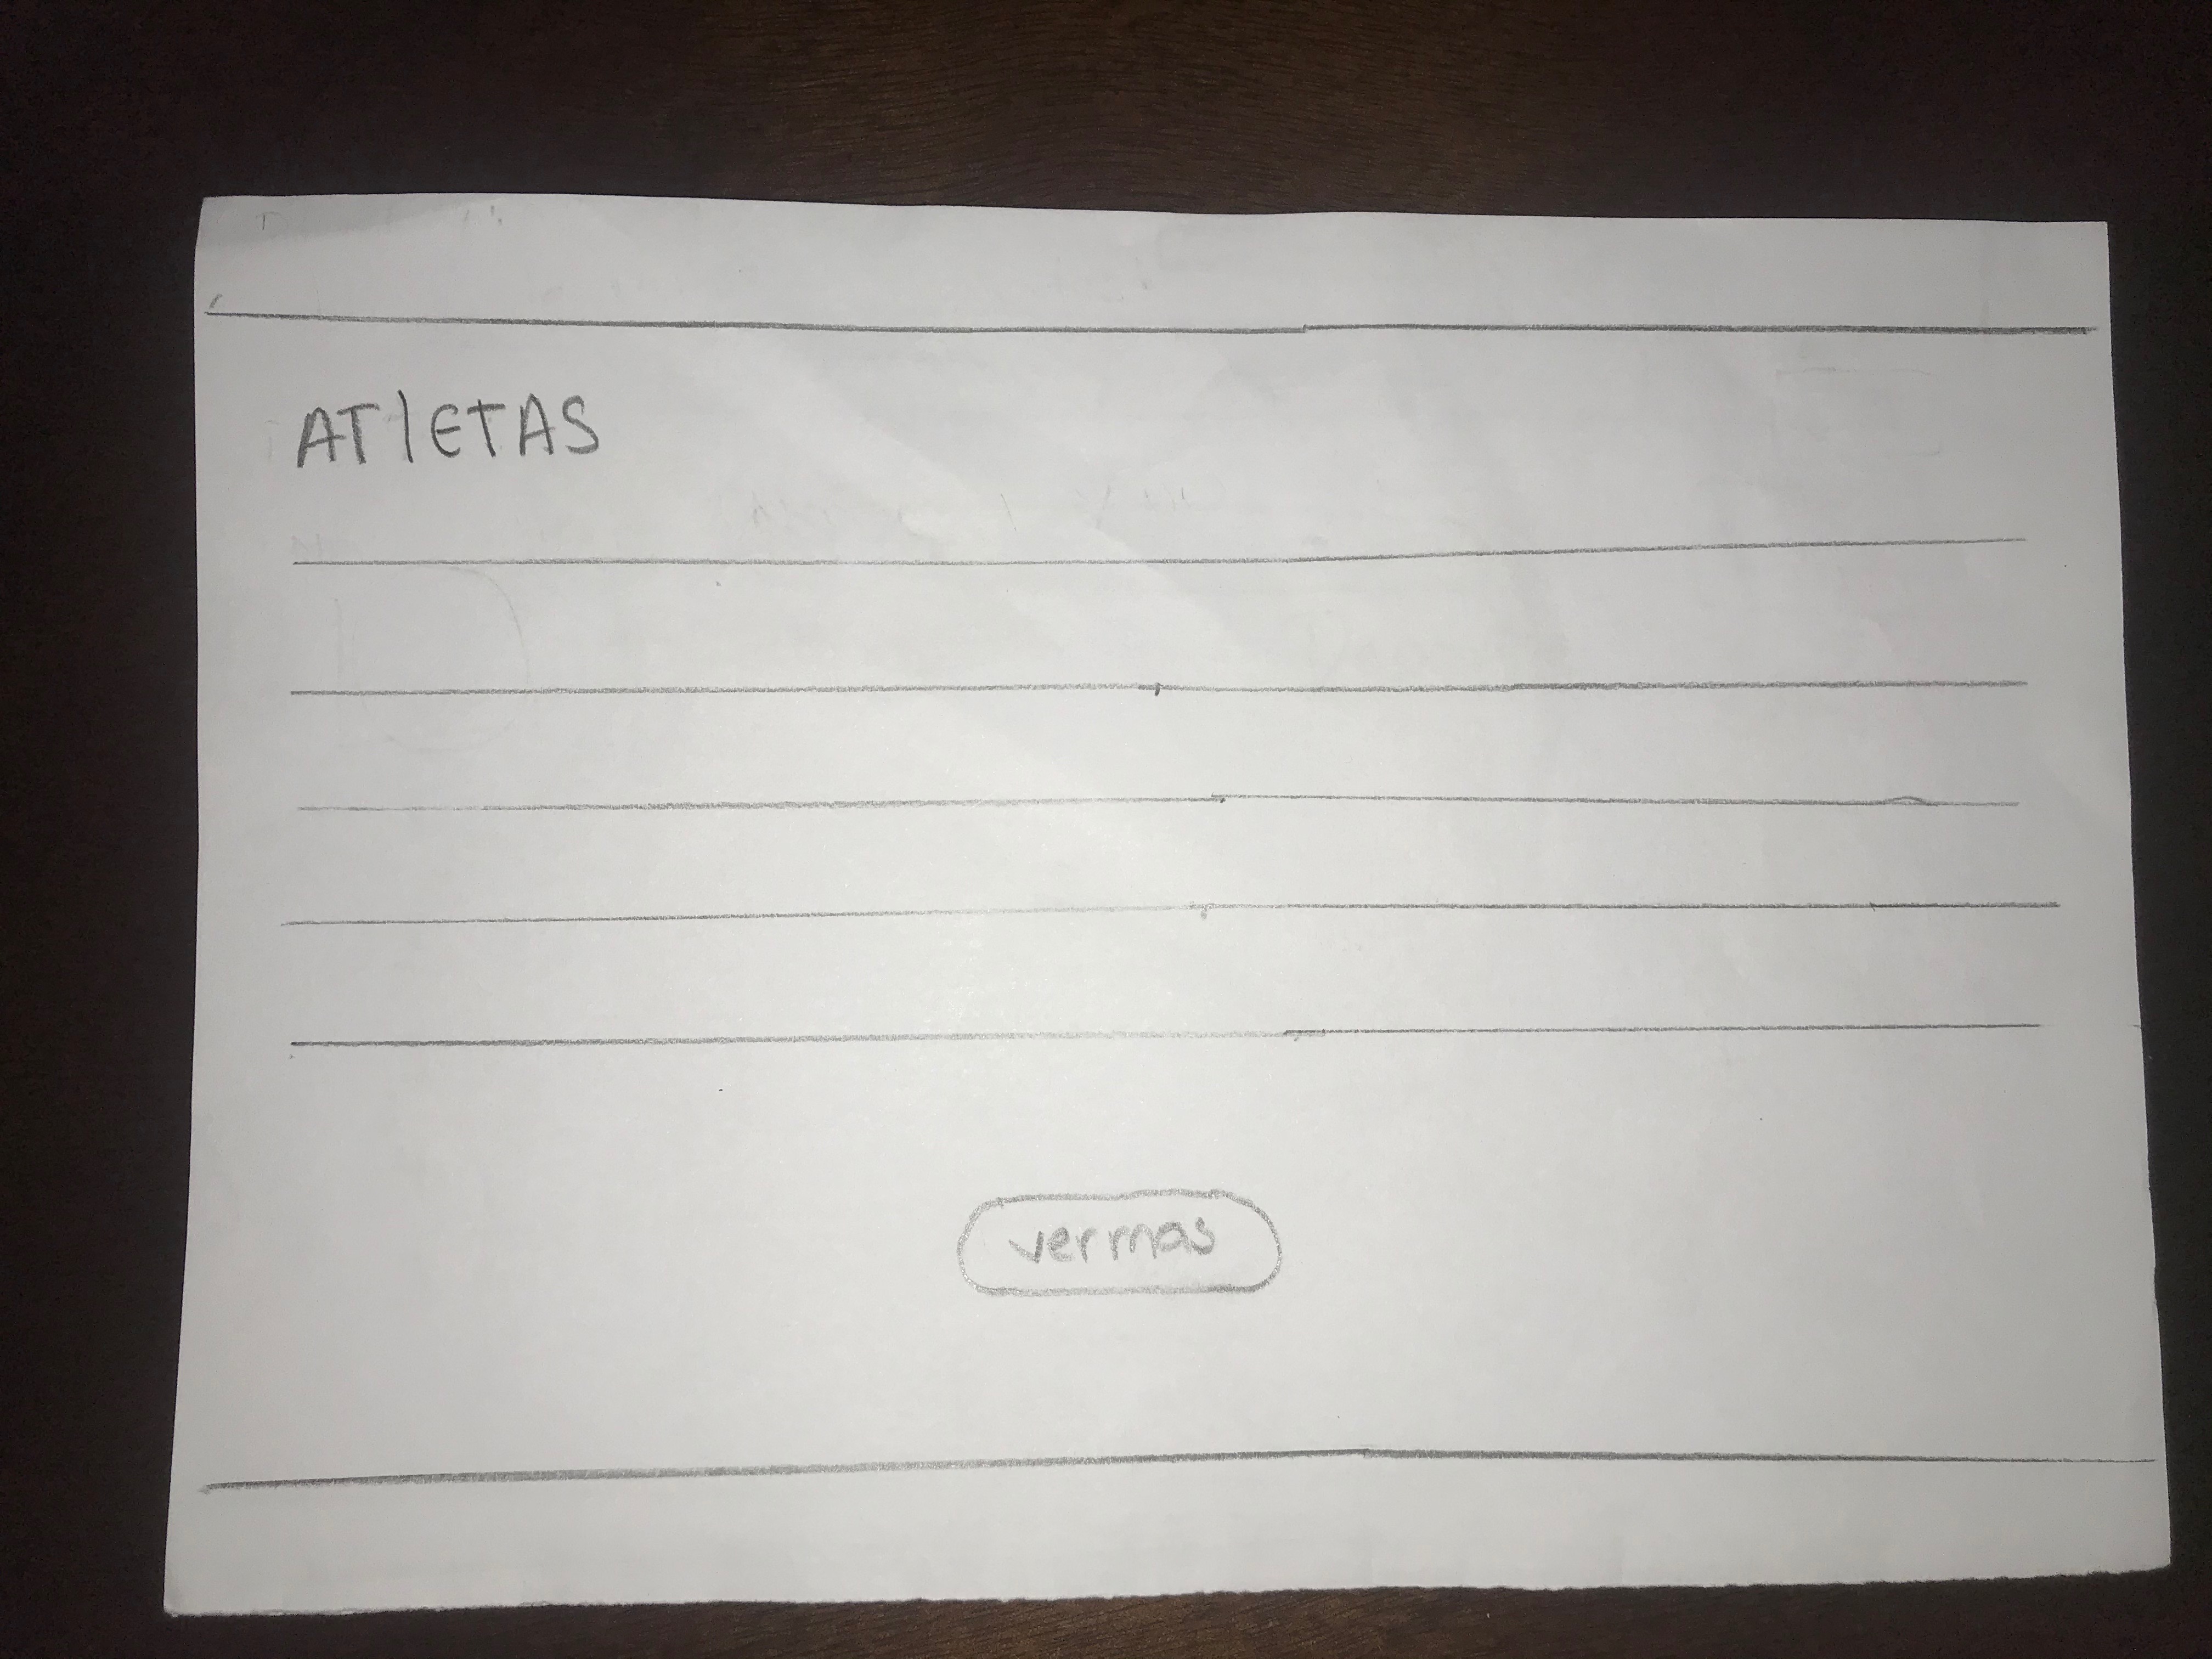 ATlETAS
ver mas